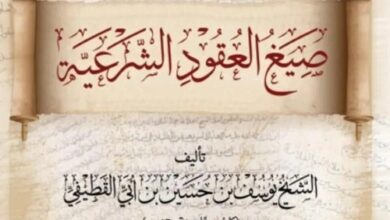 صِيَغُ العُقُودِ الشَّرْعِيَّةِ
تأليف
الشَّيْخُ يُوسُف بْن حُسَيْن بْن أُبَيّ القَطِيفِي